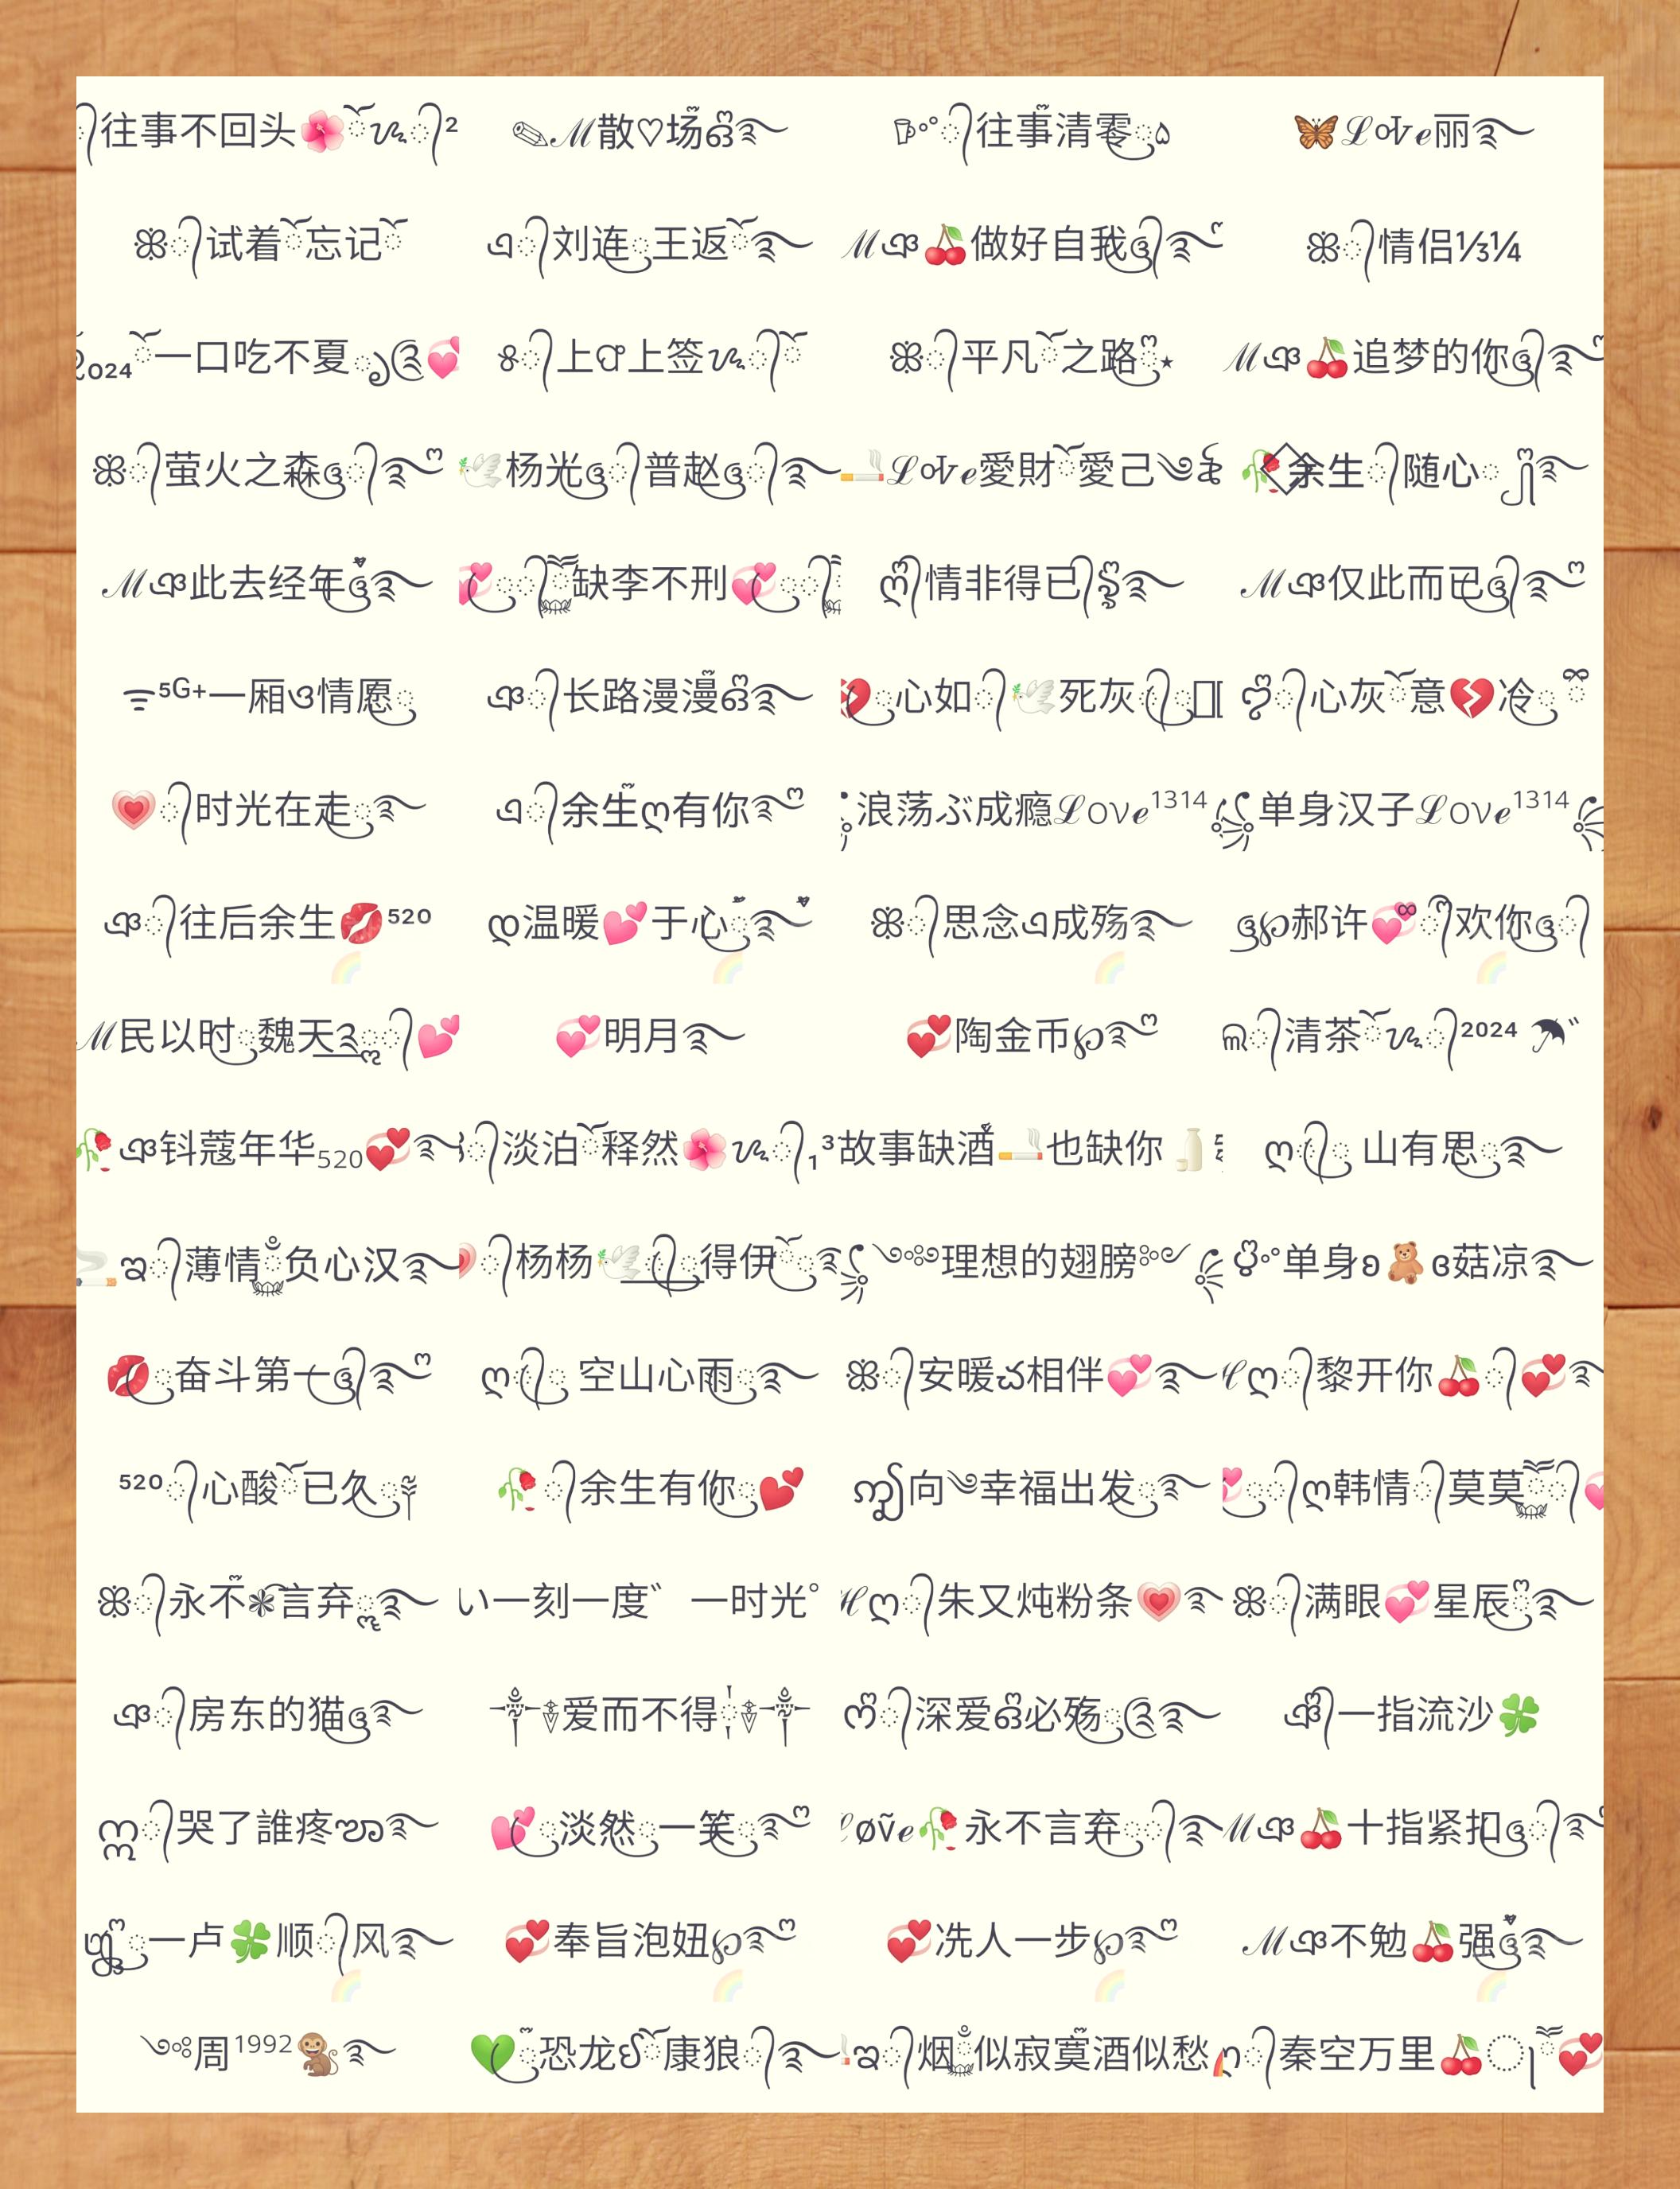 ᭄往事不回头🌺ོ꧔ꦿ᭄²  ✎ℳ散♡场ꦿ໊ོ࿐  ᭄往事清零  🦋ℒℴѵℯ丽࿐
ꕥ᭄试着ོ忘记ོ  এ᭄刘连ꦿ王返ོ࿐  ℳঞ🍒做好自我ꦿ᭄࿐  ꕥ᭄情侣⅓¼
₂₀₂₄ོ一口吃不夏ꦿ💞  ᭄上上签᭄ོ  ꕥ᭄平凡ོ之路⋆  ℳঞ🍒追梦的你ꦿ᭄࿐
ꕥ᭄萤火之森ꦿ᭄࿐ྂ  🕊杨光ꦿ᭄普赵ꦿ᭄࿐  🚬ℒℴѵℯ愛財ོ愛己༄  🥀余生᭄随心࿐
ℳঞ此去经年ꦿ࿐  💞ꦿ᭄缺李不刑💞ꦿ᭄  ღ᭄情非得已᭄࿐  ℳঞ仅此而已ꦿ᭄࿐
⁵ᴳ⁺一厢ও情愿ꦿ  ঞ᭄长路漫漫࿐  💔ꦿ心如᭄🕊死灰  ᭄心灰ོ意💔冷ꦿ
💗᭄时光在走ꦿ࿐  এ᭄余生ღ有你࿐  浪荡ぶ成瘾ℒoveℯ¹³¹⁴  单身汉子ℒoveℯ¹³¹⁴
ঞ᭄往后余生💋⁵²⁰  ღ温暖💕于心ꦿ࿐  ꕥ᭄思念এ成殇࿐  ꦿ℘郝许💞᭄欢你ꦿ᭄
ℳ民以时ꦿ魏天᭄💕  💞明月࿐  💞陶金币℘࿐  ᭄清茶᭄ོ²⁰²⁴ ☂
🥀ঞ钭蔻年华₅₂₀💞࿐  ᭄淡泊ོ释然🌺᭄₁³  故事缺酒🚬也缺你🍶  ღ᭄ꦿ 山有思ꦿ࿐
🚬᭄薄情負心汉࿐  💗᭄杨杨🕊得伊ꦿོ࿐  ༄理想的翅膀  单身ʚ🧸ɞ菇凉࿐
💋ꦿ奋斗第一ꦿ᭄࿐  ღ᭄ꦿ 空山心雨ꦿ࿐  ꕥ᭄安暖చ相伴💞࿐  ℋღ᭄黎开你🍒᭄💞࿐
⁵²⁰᭄心酸ོ已久ꦿ  🥀᭄余生有你ꦿ💕  向༄幸福出发ꦿ࿐  💞ꦿ᭄ღ韩情᭄莫莫᭄💞
ꕥ᭄永不❃言弃࿐  い一刻一度゛ 一时光°  ℋღ᭄朱又炖粉条💗࿐  ꕥ᭄满眼💞星辰ꦿ࿐
ঞ᭄房东的猫ꦿ࿐  爱而不得  ᭄深爱必殇ꦿ࿐  ঞ᭄一指流沙🍀
᭄哭了誰疼࿐  💕ꦿ淡然ꦿ一笑ꦿ࿐  øṽℯ🥀永不言弃ꦿ᭄࿐  ℳঞ🍒十指紧扣ꦿ᭄࿐
ꦿ一卢🍀顺᭄风࿐  💞奉旨泡妞℘࿐  💞冼人一步℘࿐  ℳঞ不勉🍒强ꦿ࿐
༄周¹⁹⁹²🐒࿐  💚ꦿ恐龙ོ康狼᭄࿐  🚬᭄烟似寂寞酒似愁  ᭄秦空万里🍒💞